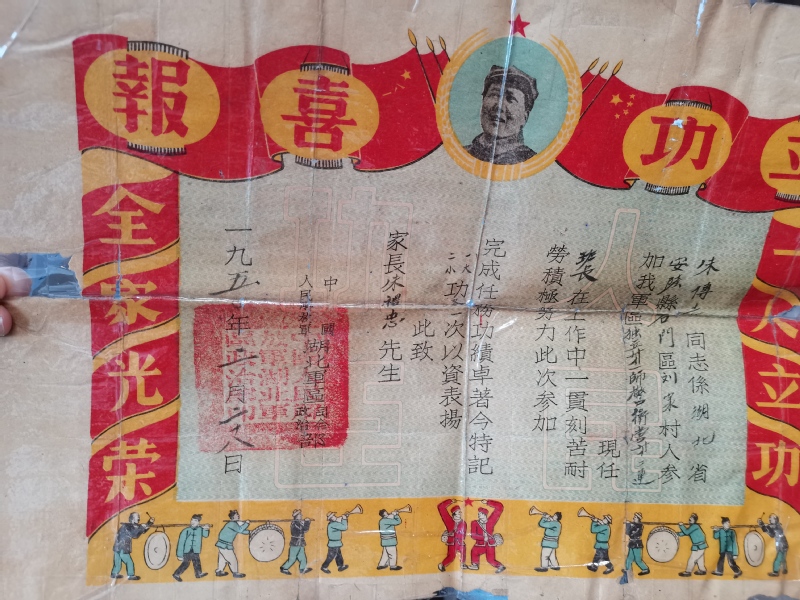 立功喜報
一人立功
全家光荣
朱傳 同志係湖北省
安陆縣 門區刘 村人参
加我軍區 師警衛營 連
現任
班長在工作中一貫刻苦耐
勞積極努力此次参加
完成任務功績卓著今特記
一大
二小功 次以資表揚
此致
家長朱 忠先生
中國
人民解放軍湖北軍區司令部
政治部
一九五 年 月 八日